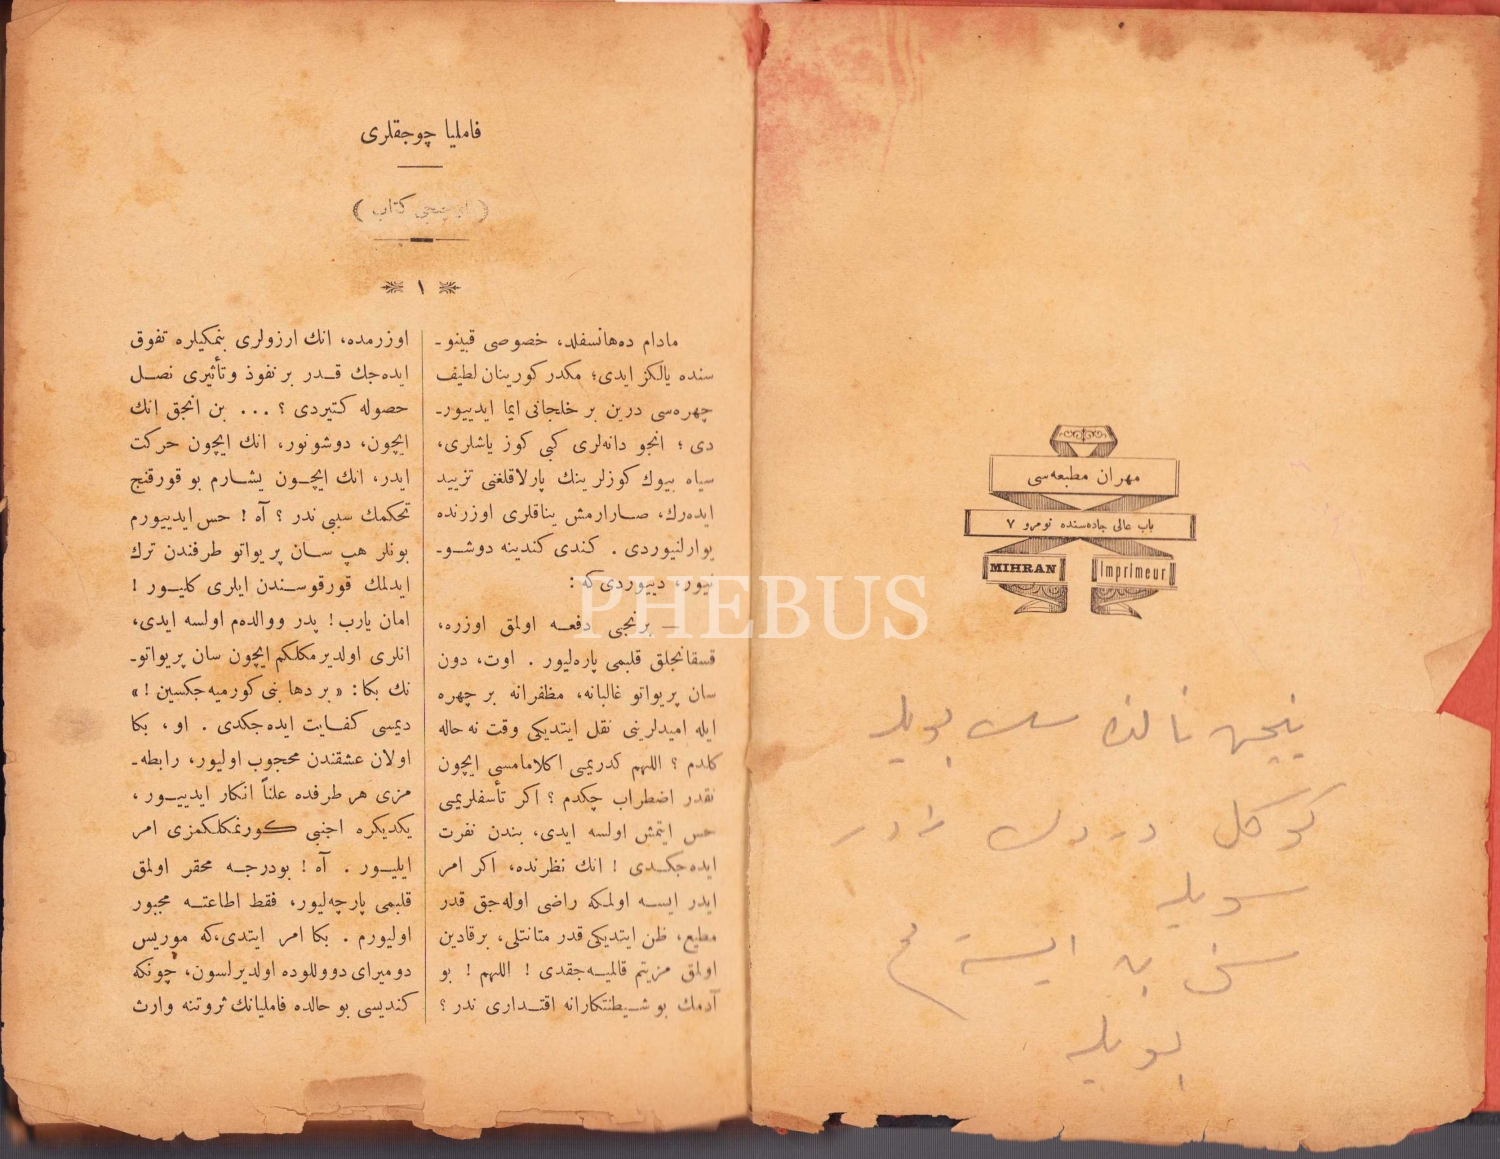 مهران مطبعه‌سی
باب عالی جاده‌سنده نومرو ٧
MIHRAN Imprimeur
سویله
بویله
فاملیا چوجقلری
( اوچنجی کتاب )
١
مادام ده‌هانسفلد، خصوصی قبینو-
سنده یالکز ایدی؛ مکدر کورینان لطیف
چهره‌سی درین بر خلجانی ایما ایدییور-
دی ؛ انجو دانه‌لری کبی کوز یاشلری،
سیاه بیوك کوزلرینك پارلاقلغنی تزیید
ایده‌رك، صارارمش یناقلری اوزرنده
یوارلنیوردی . کندی کندینه دوشو-
نیور، دییوردی که :
— برنجی دفعه اولمق اوزره،
قسقانجلق قلبمی پاره‌لیور . اوت، دون
سان پریواتو غالبانه، مظفرانه بر چهره
ایله امیدلرینی نقل ایتدیکی وقت نه حاله
کلدم ؟ اللهم کدریمی اکلامامسی ایچون
نقدر اضطراب چکدم ؟ اکر تأسفلریمی
حس ایتمش اولسه ایدی، بندن نفرت
ایده‌جکدی ! انك نظرنده، اکر امر
ایدر ایسه اولمکه راضی اوله‌جق قدر
مطیع، ظن ایتدیکی قدر متانتلی، برقادین
اولمق مزیتم قالمیه‌جقدی ! اللهم ! بو
آدمك بو شیطنتکارانه اقتداری ندر ؟
اوزرمده، انك ارزولری بنمکیلره تفوق
ایده‌جك قدر بر نفوذ وتأثیری نصل
حصوله کتیردی ؟ ... بن انجق انك
ایچون، دوشونور، انك ایچون حرکت
ایدر، انك ایچون یشارم بو قورقنج
تحکمك سببی ندر ؟ آه ! حس ایدییورم
بونلر هپ سان پریواتو طرفندن ترك
ایدلمك قورقوسندن ایلری کلیور !
امان یارب ! پدر ووالده‌م اولسه ایدی،
انلری اولدیرمکلکم ایچون سان پریواتو-
نك بکا : « بر دها بنی کورمیه‌جکسین ! »
دیمسی کفایت ایده‌جکدی . او ، بکا
اولان عشقندن محجوب اولیور، رابطه-
مزی هر طرفده علناً انکار ایدییور ،
یکدیکره اجنبی کورنمکلکمزی امر
ایلیور . آه ! بودرجه محقر اولمق
قلبمی پارچه‌لیور، فقط اطاعته مجبور
اولیورم . بکا امر ایتدی،که موریس
دومیرای دووللوده اولدیرلسون، چونکه
کندیسی بو حالده فاملیانك ثروتنه وارث
PHEBUS